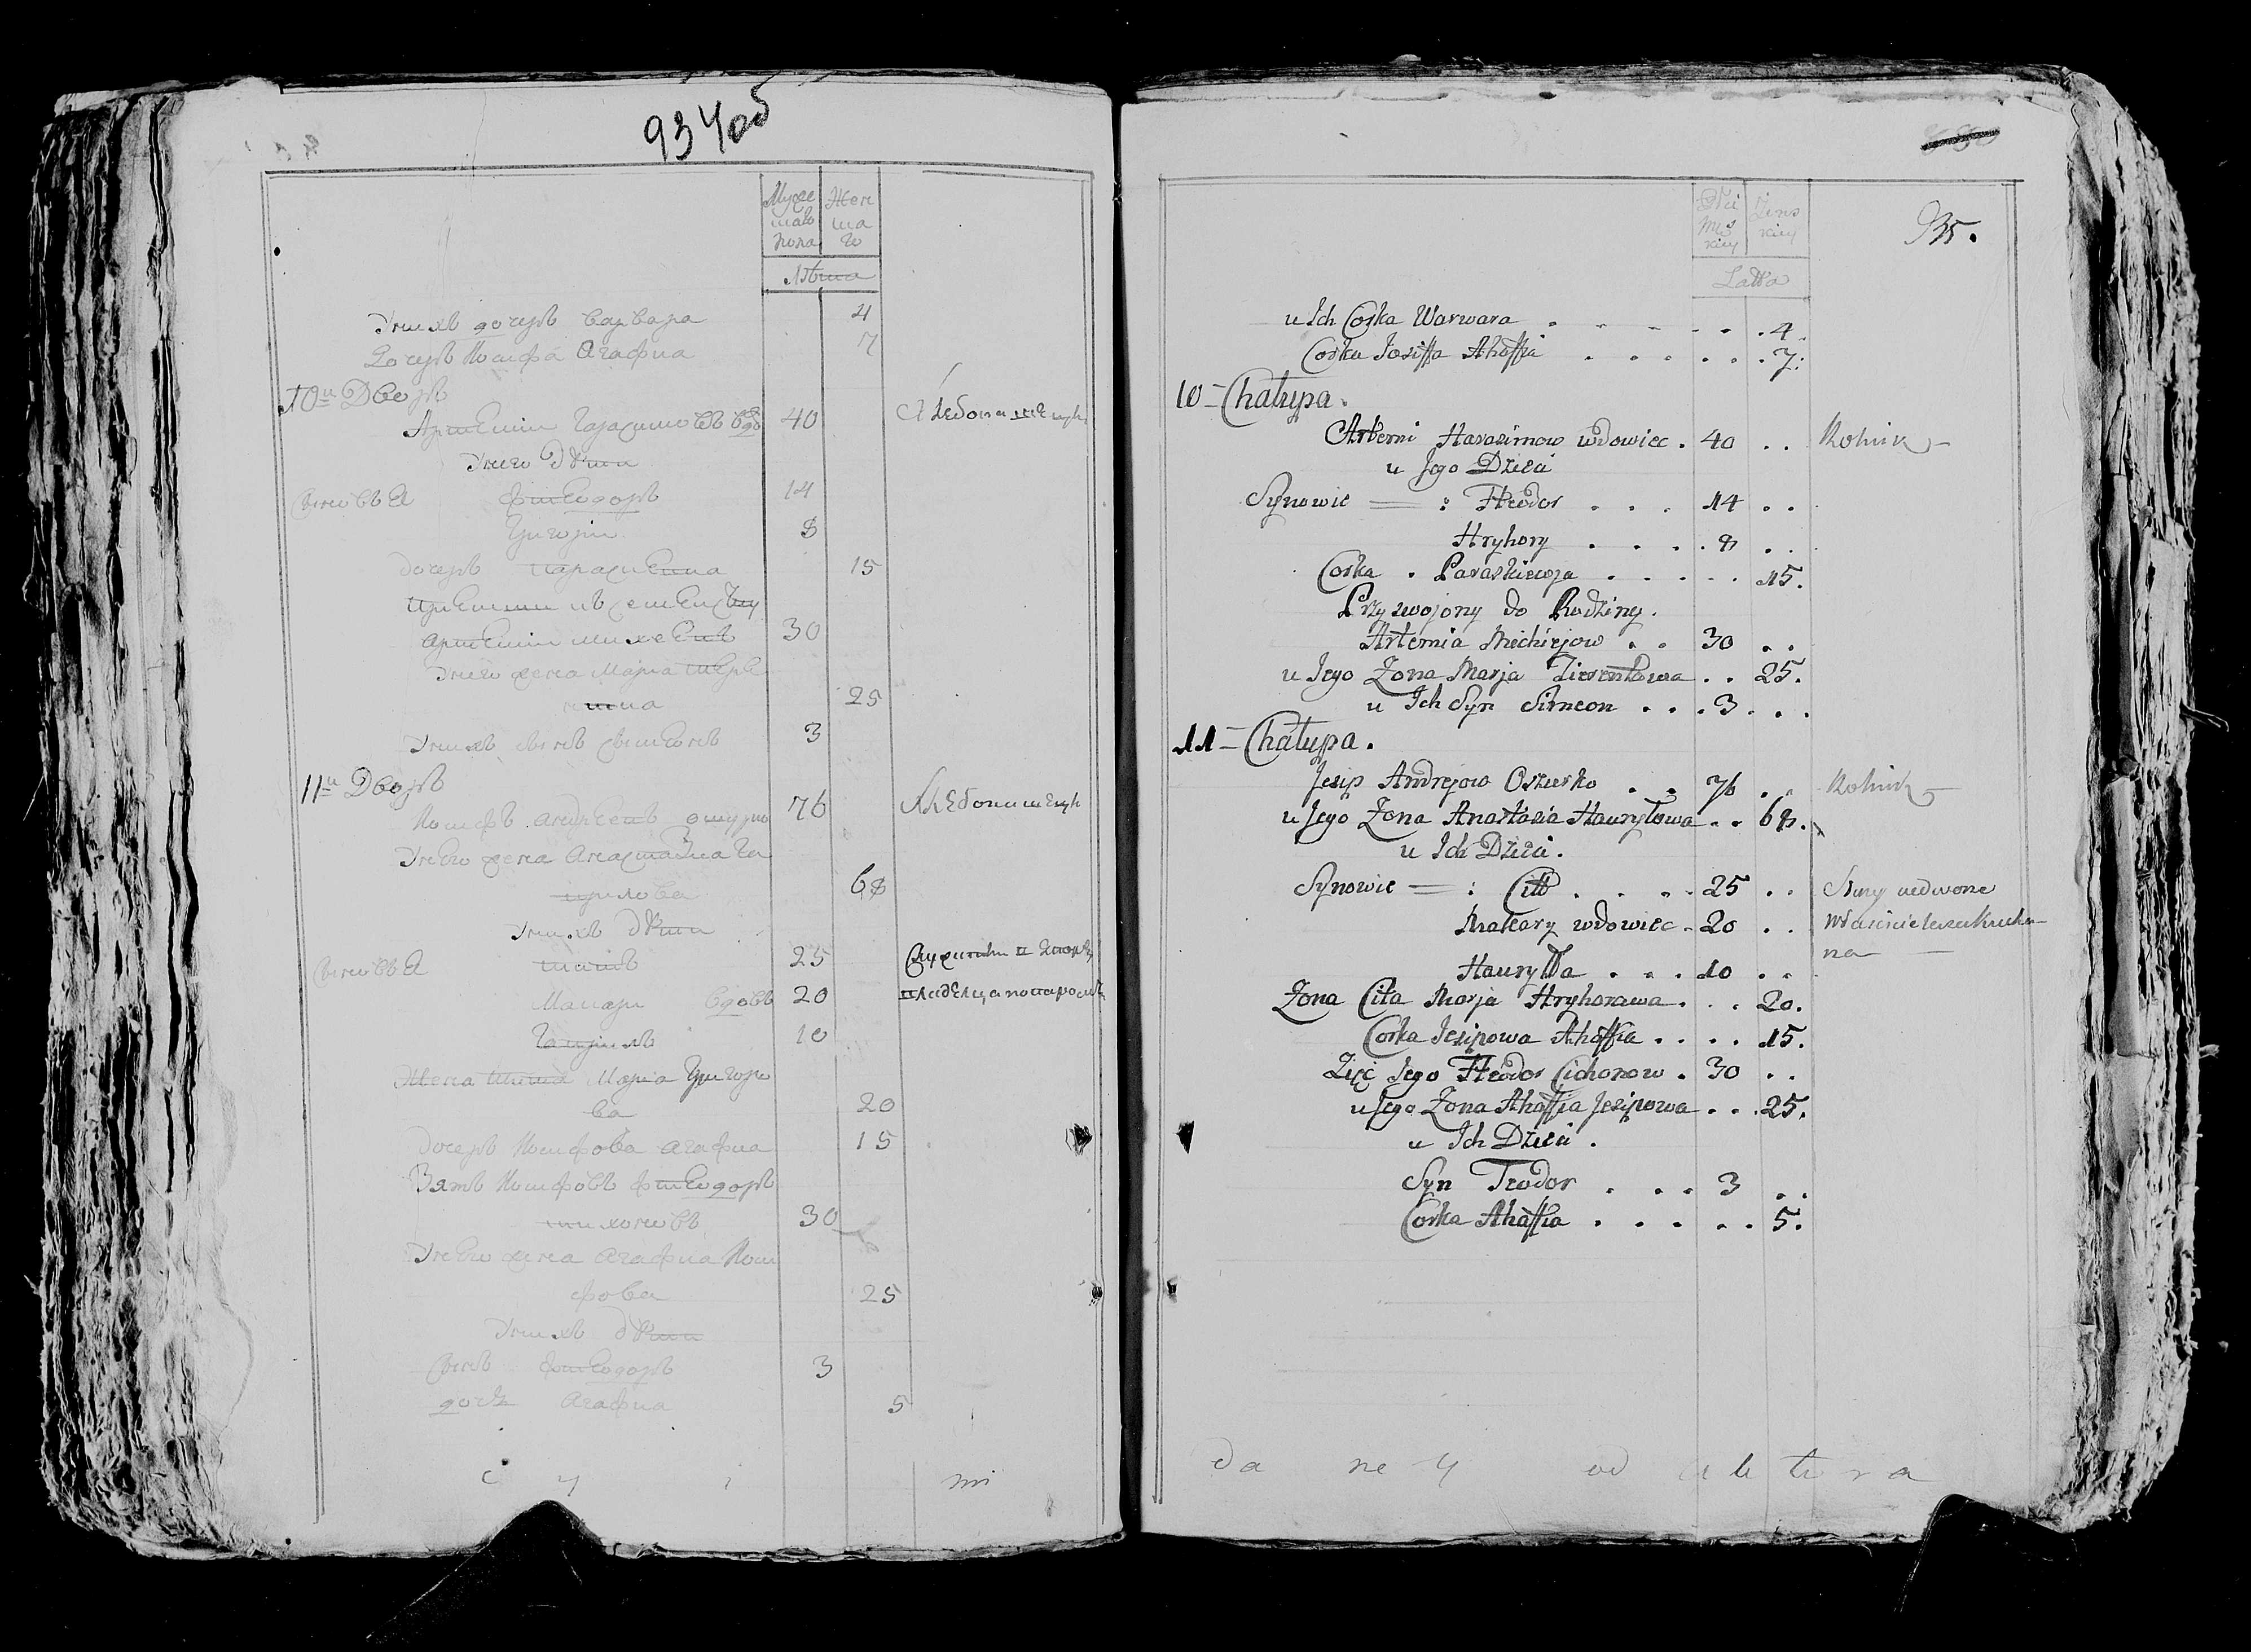 934об
Мужескаго пола
Женскаго
Лѣта
Унихъ дочерь Варвара 4
Дочерь Иосифа Агафиа 7
10й Дворъ
Артемии Гарасимовъ вдо 40 Хлебопашецъ
Унего дѣти
Сыновья Фтеодоръ 14
Григории 8
дочерь Параскевиа 15
Артемии Михеевъ 30
Унего жена Мариа Тере
25
Унихъ сынъ Симеонъ 3
11й Дворъ
Иосифъ Андреевъ Ошурко 76 Хлебопашецъ
Унего жена Анастасиа Га
врилова 68
Унихъ дѣти
Сыновья Титъ 25
Макари вдовъ 20
Гаврилъ 10
Жена Тита Мариа Григоро
ва 20
дочерь Иосифова Агафиа 15
Зять Иосифовъ Фтеодоръ
Тихоновъ 30
Унего жена Агафиа Иоси
фова 25
Унихъ дѣти
Сынъ Фтеодоръ 3
дочь Агафиа 5
935.
Płci Męskiey
Żenskiey
Latta
u Ich Corka Warwara 4.
Corka Josiffa Ahaffia 7.
10 - Chałupa.
Artemi Harasimow wdowiec. 40 .. Rolnik
u Jego Dzieci
Synowie = : Fteodor . . . 14 ..
Hryhory . . . . 8 ..
Corka . Paraskiewja . . . . . 15.
Przyswojony do Rodziny.
Artemia Michiejow . . 30 ..
u Jego Żona Marja Tierentowa . . 25.
u Ich Syn Simeon . . . 3 . . .
11 - Chałupa.
Jesip Andrejow Oszurko . . 76 .. Rolnik
u Jego Żona Anastazia Hauryłowa . . 68.
u Ich Dzieci.
Synowie = : Citt . . . . 25 ..
Makary wdowiec . 20 ..
Hauryłła . . . 10 ..
Żona Cita Marja Hryhorawa . . . 20.
Corka Jesipowa Ahaffia . . . . 15.
Zięć Jego Fteodor Cichonow . 30 ..
u Jego Żona Ahaffia Jesipowa . . . 25.
u Ich Dzieci .
Syn Teodor . . . 3 ..
Corka Ahaffia . . . . . 5.